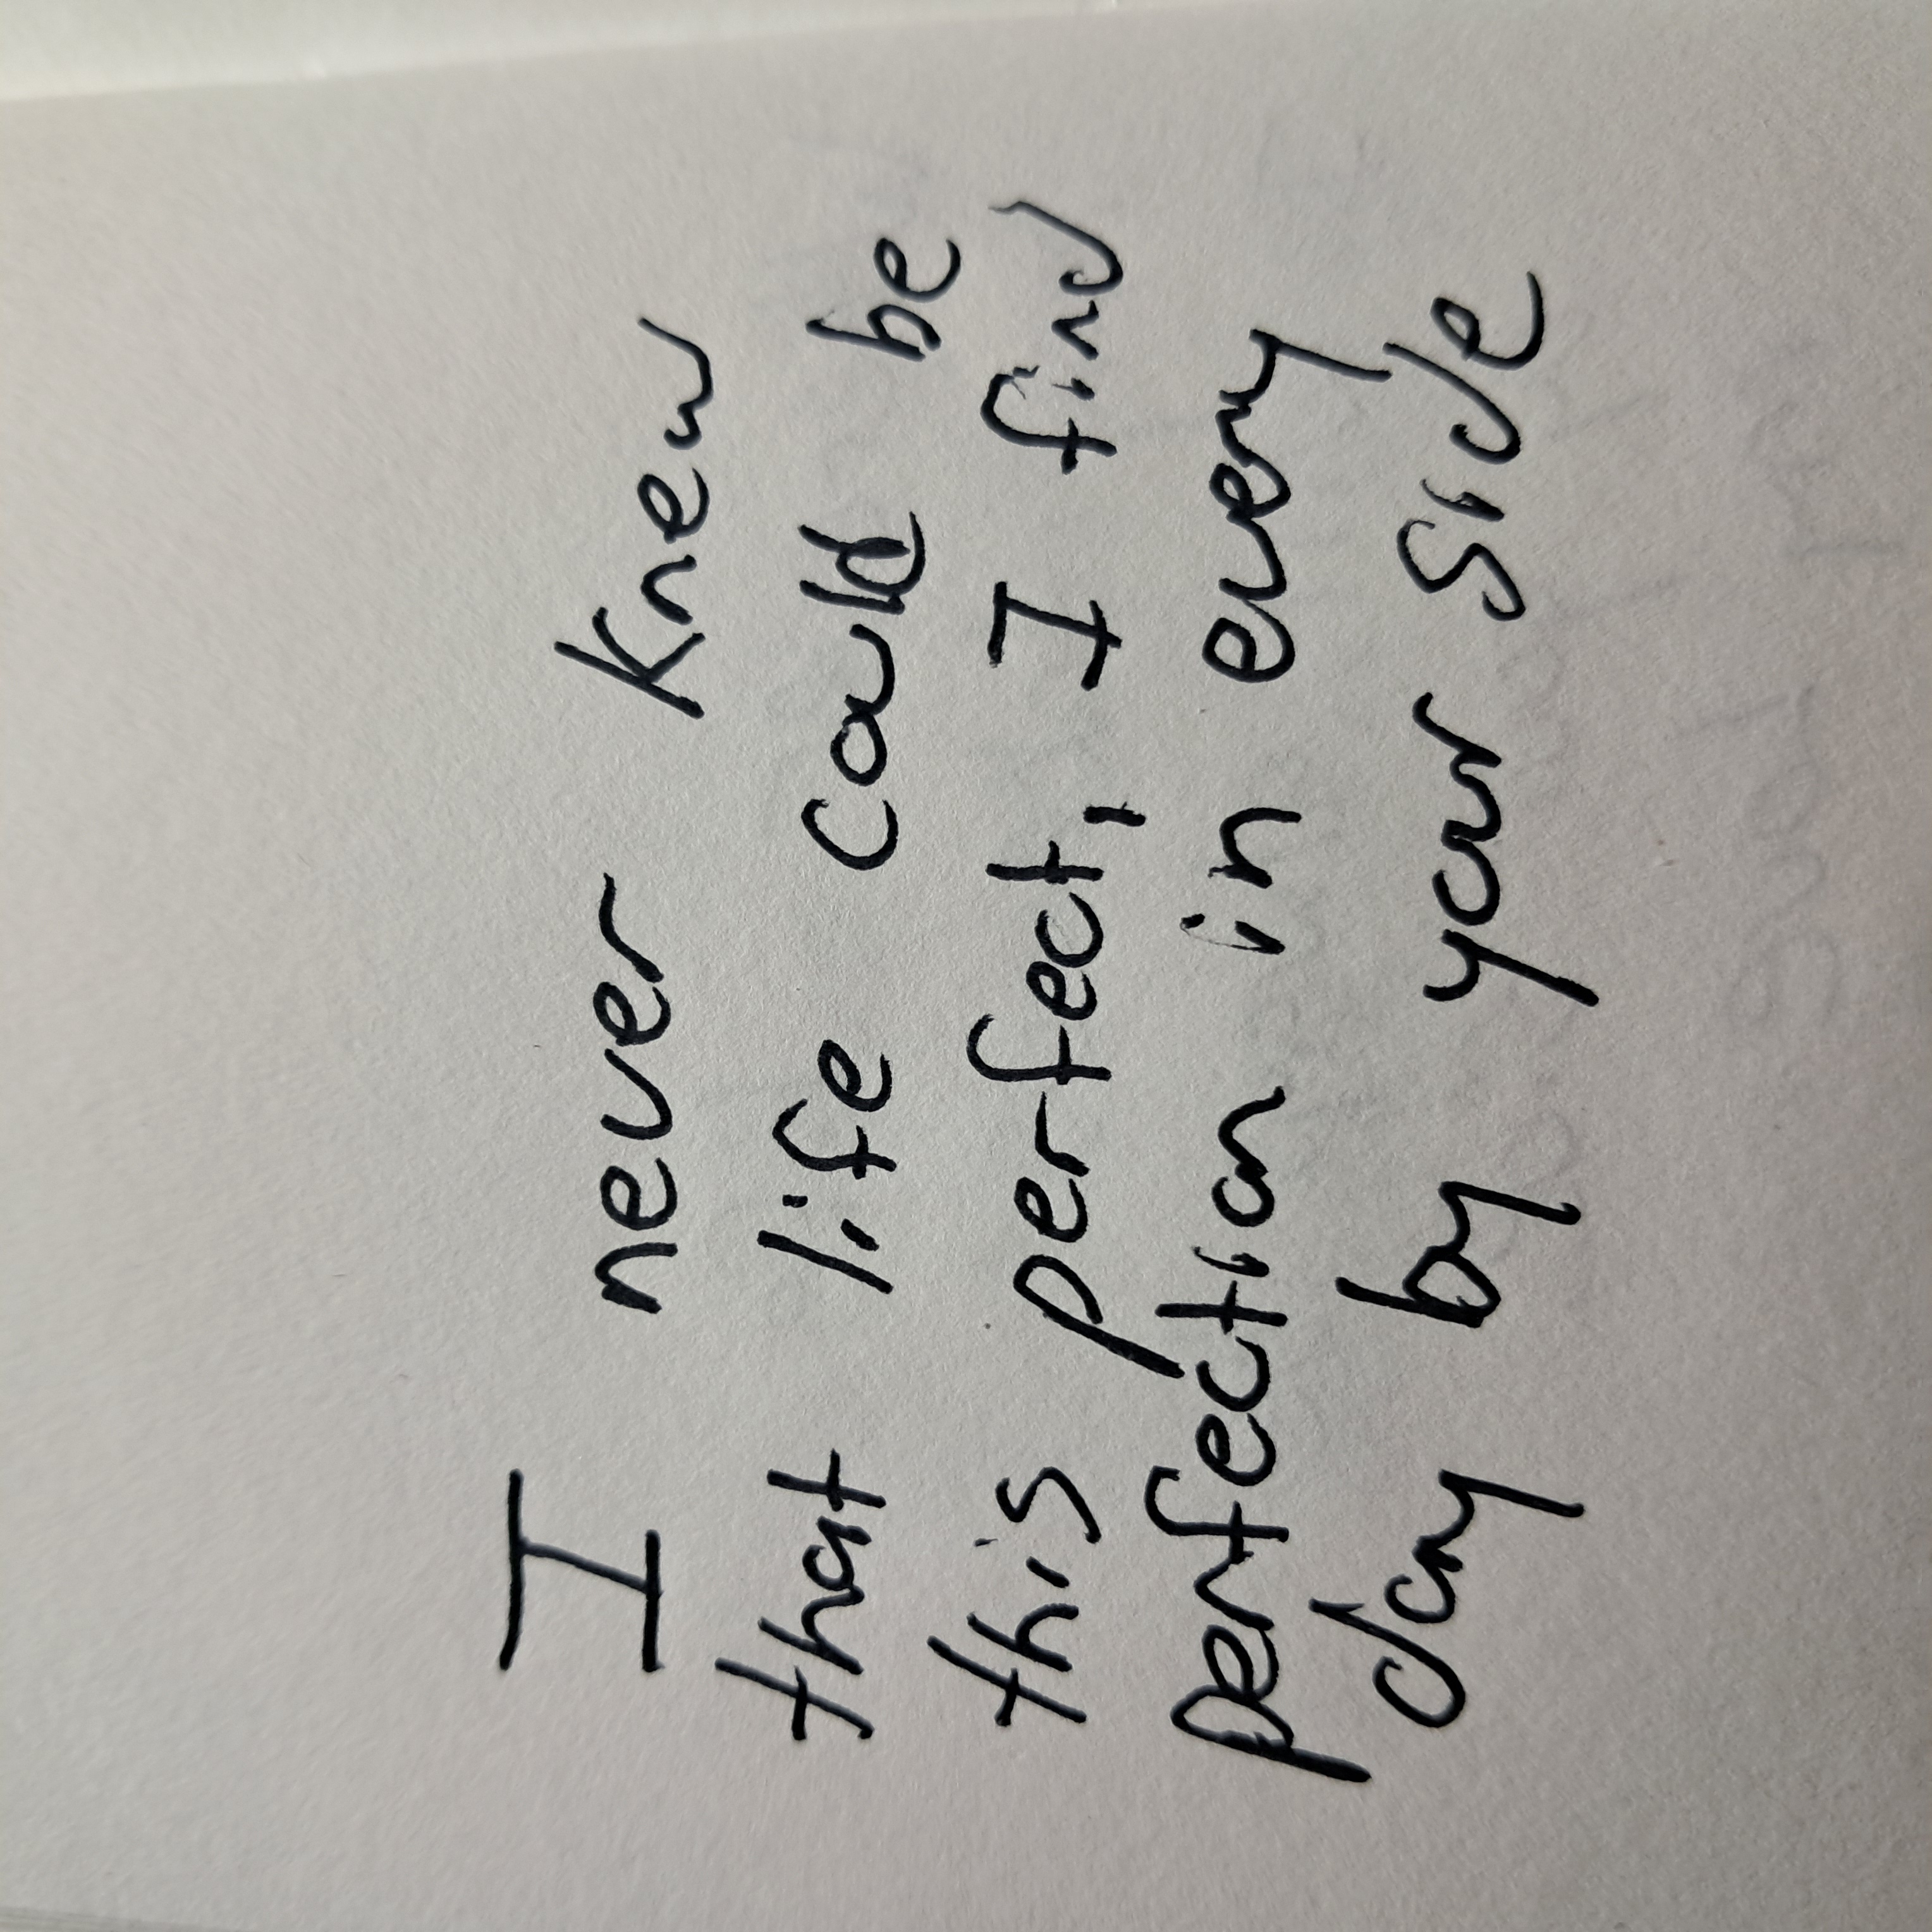 I never knew
that life could be
this perfect, I find
perfection in every
day by your side